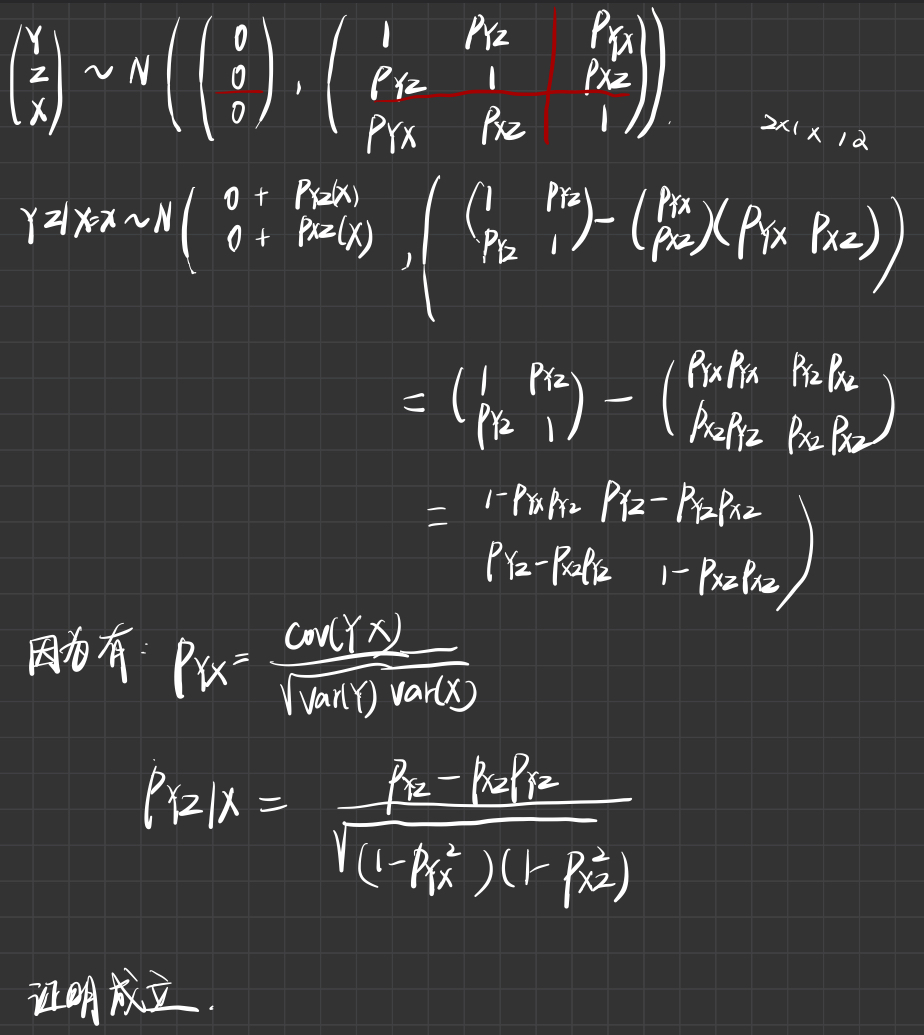 (Y Z X) ~ N ( (0 0 0), (1 ρYZ ρYX ρYZ 1 ρXZ ρYX ρXZ 1) ).
2x1 x 12
YZ|X=x ~ N ( 0 + ρYZ(X) 0 + ρXZ(X) , ( (1 ρYZ ρYZ 1) - (ρYX ρXZ)(ρYX ρXZ) )
= (1 ρYZ ρYZ 1) - (ρYXρYX ρYZρXZ ρXZρYZ ρXZρXZ)
= 1-ρYXρYZ ρYZ-ρYZρXZ ρYZ-ρXZρYZ 1-ρXZρXZ )
因为有: ρYX = cov(YX) / √var(Y) var(X)
ρYZ|X = ρYZ - ρXZρYZ / √(1-ρYX²)(1-ρXZ²)
证明成立.